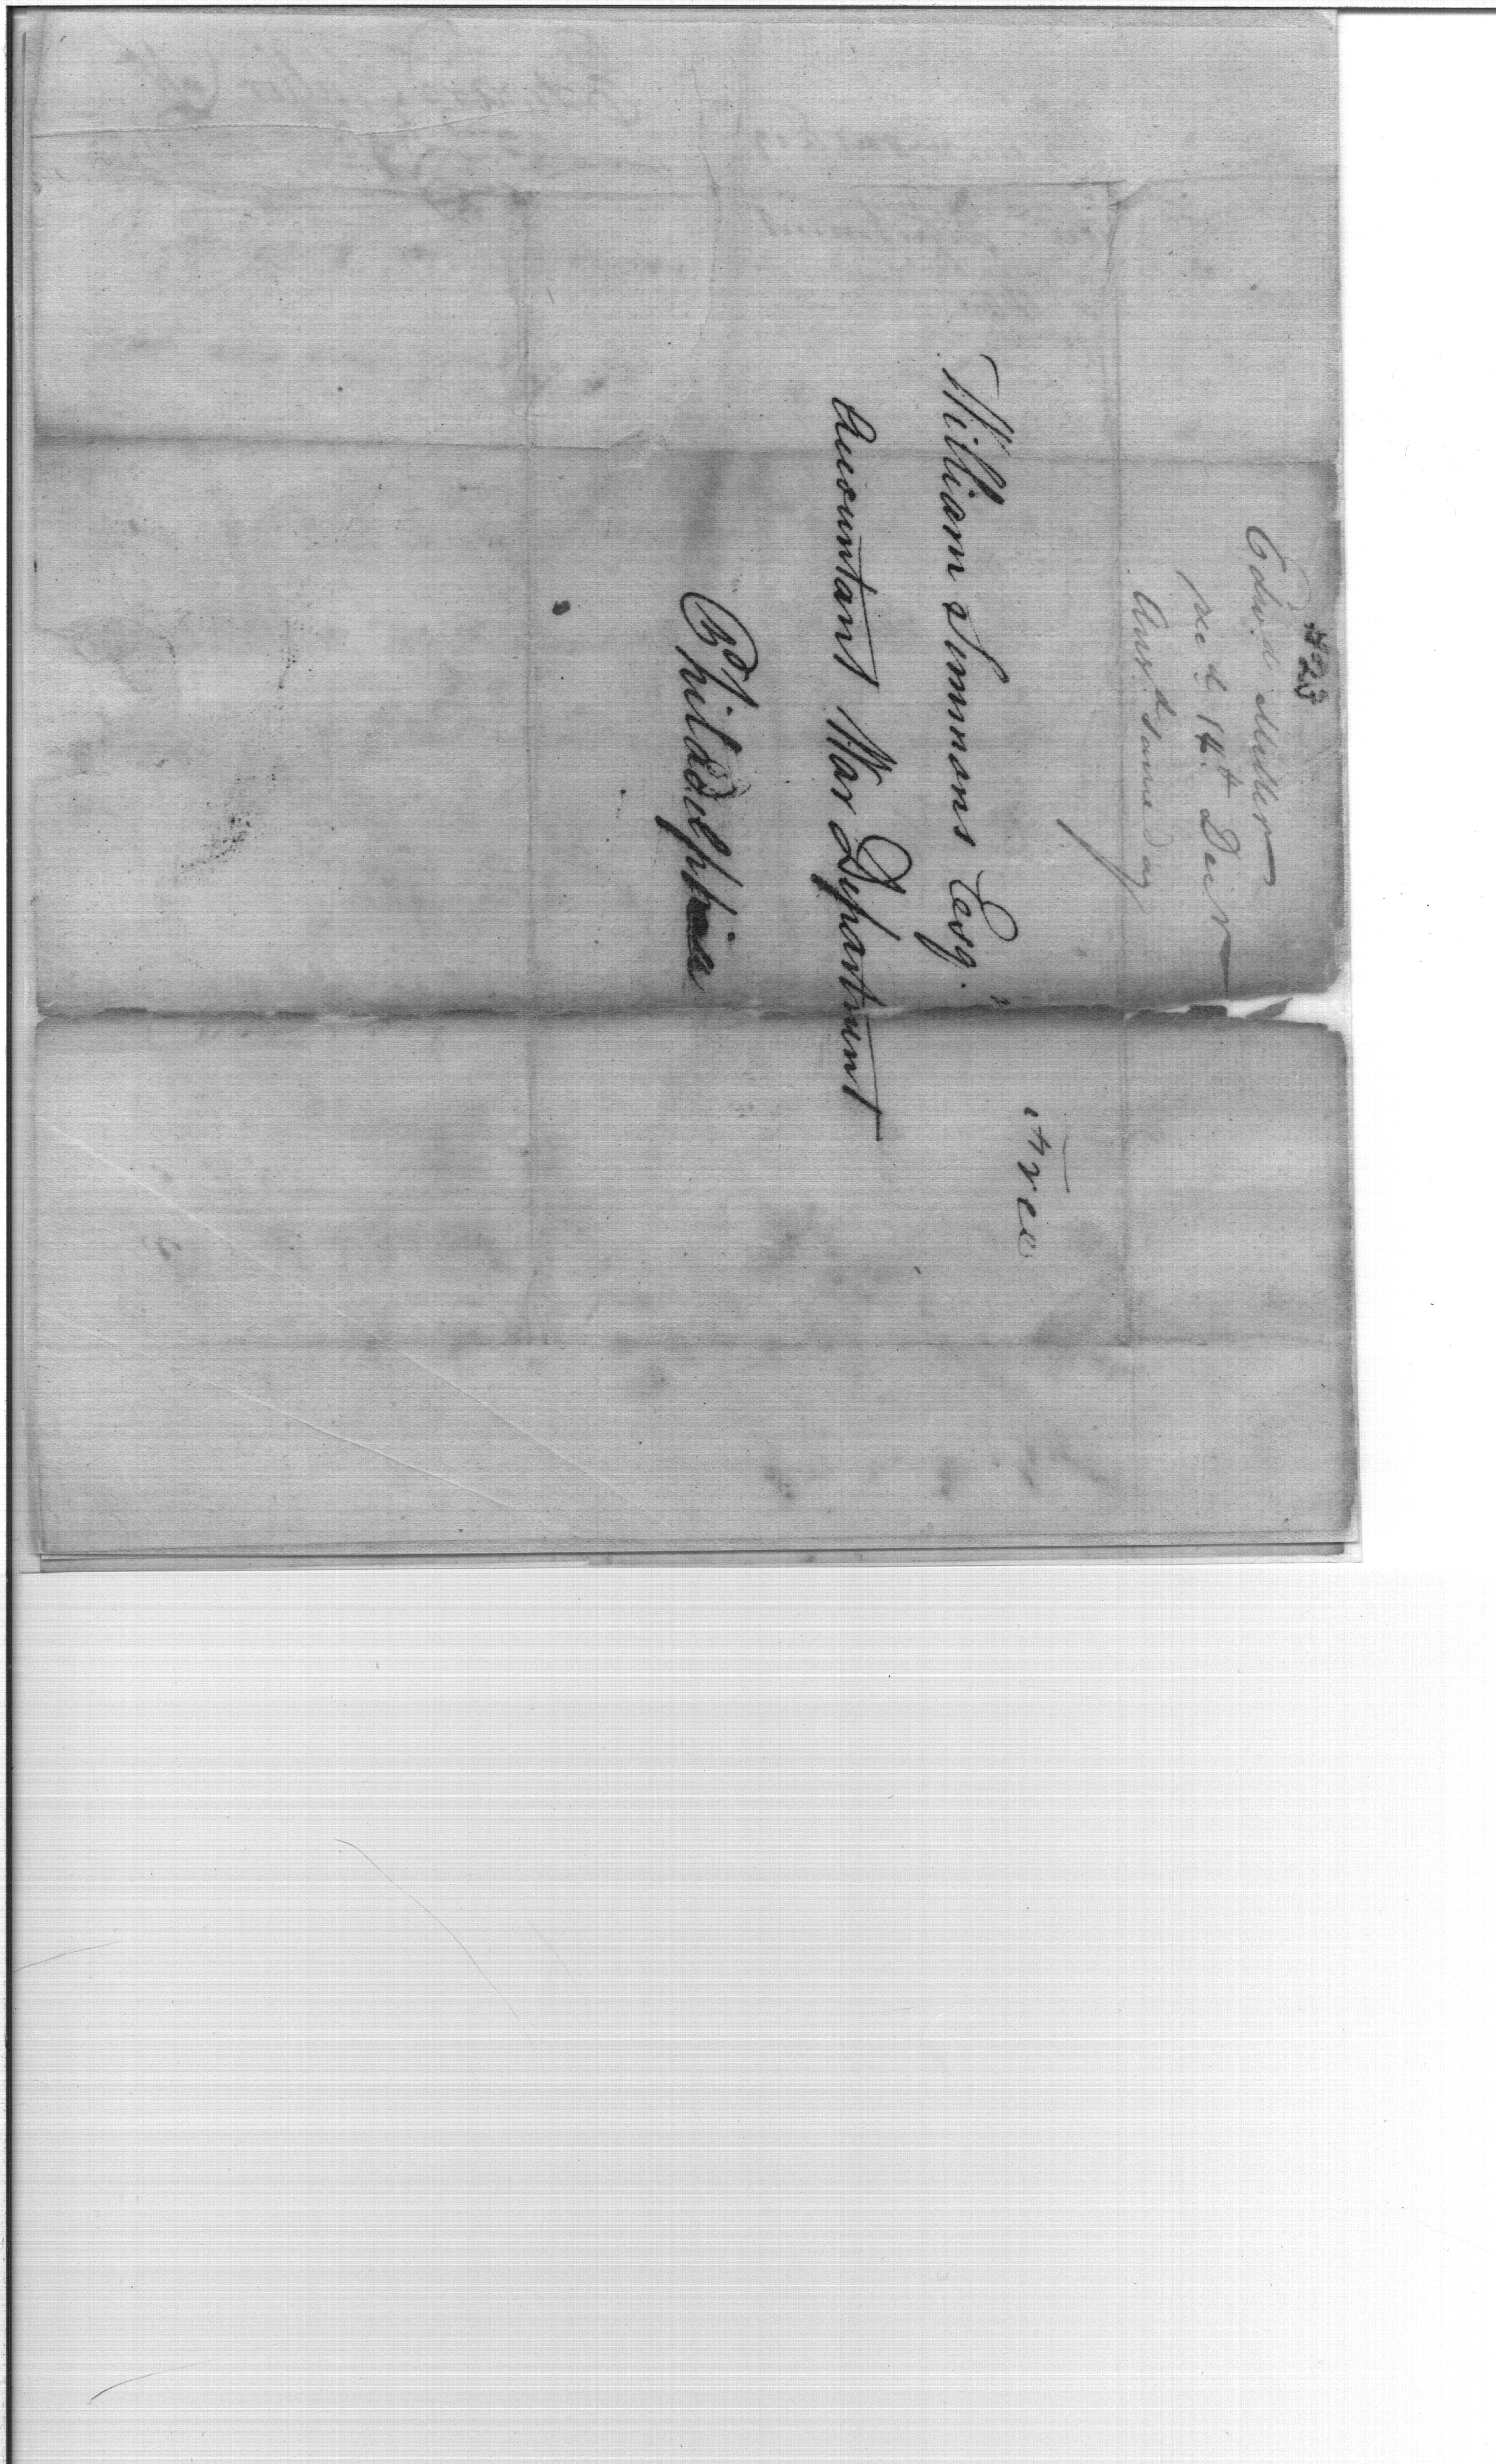 #23
Edwd Miller
recd 14th Decr
Answd same day
Free
William Simmons Esqr.
Accountant War Department
Philadelphia